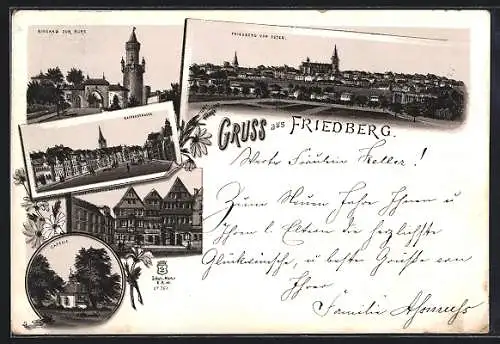 EINGANG ZUR BURG
FRIEDBERG VON OSTEN.
KAISERSTRASSE
GRUSS aus FRIEDBERG.
CAPELLE
Werte Fräulein Keller!
Zum Neuen Jahre Ihnen u
Ihren l. Eltern die herzlichste
Glückwünsche, u besten Grüße von
Ihrer
Familie